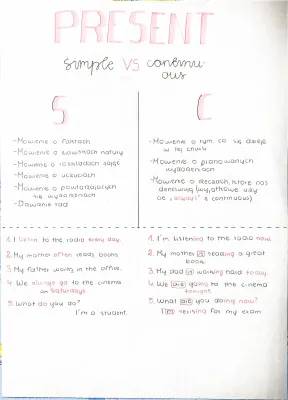 PRESENT
simple VS continu
ous
S
C
- Mówienie o faktach
- Mówienie o zjawiskach natury
- Mówienie o rozkładach zajęć
- Mówienie o uczuciach
- Mówienie o powtarzających
się wydarzeniach
- Dawanie rad
- Mówienie o tym, co się dzieje
w tej chwili
- Mówienie o planowanych
wydarzeniach
- Mówienie o rzeczach, które nas
denerwują (wyjątkowe użycie
"always" z continuous)
1. I listen to the radio every day.
2. My mother often reads books.
3. My father works in the office.
4. We always go to the cinema
on Saturdays
5. What do you do?
I'm a student.
1. I'm listening to the radio now.
2. My mother is reading a great
book.
3. My dad is working hard today.
4. We are going to the cinema
tonight.
5. What are you doing now?
I'm revising for my exam